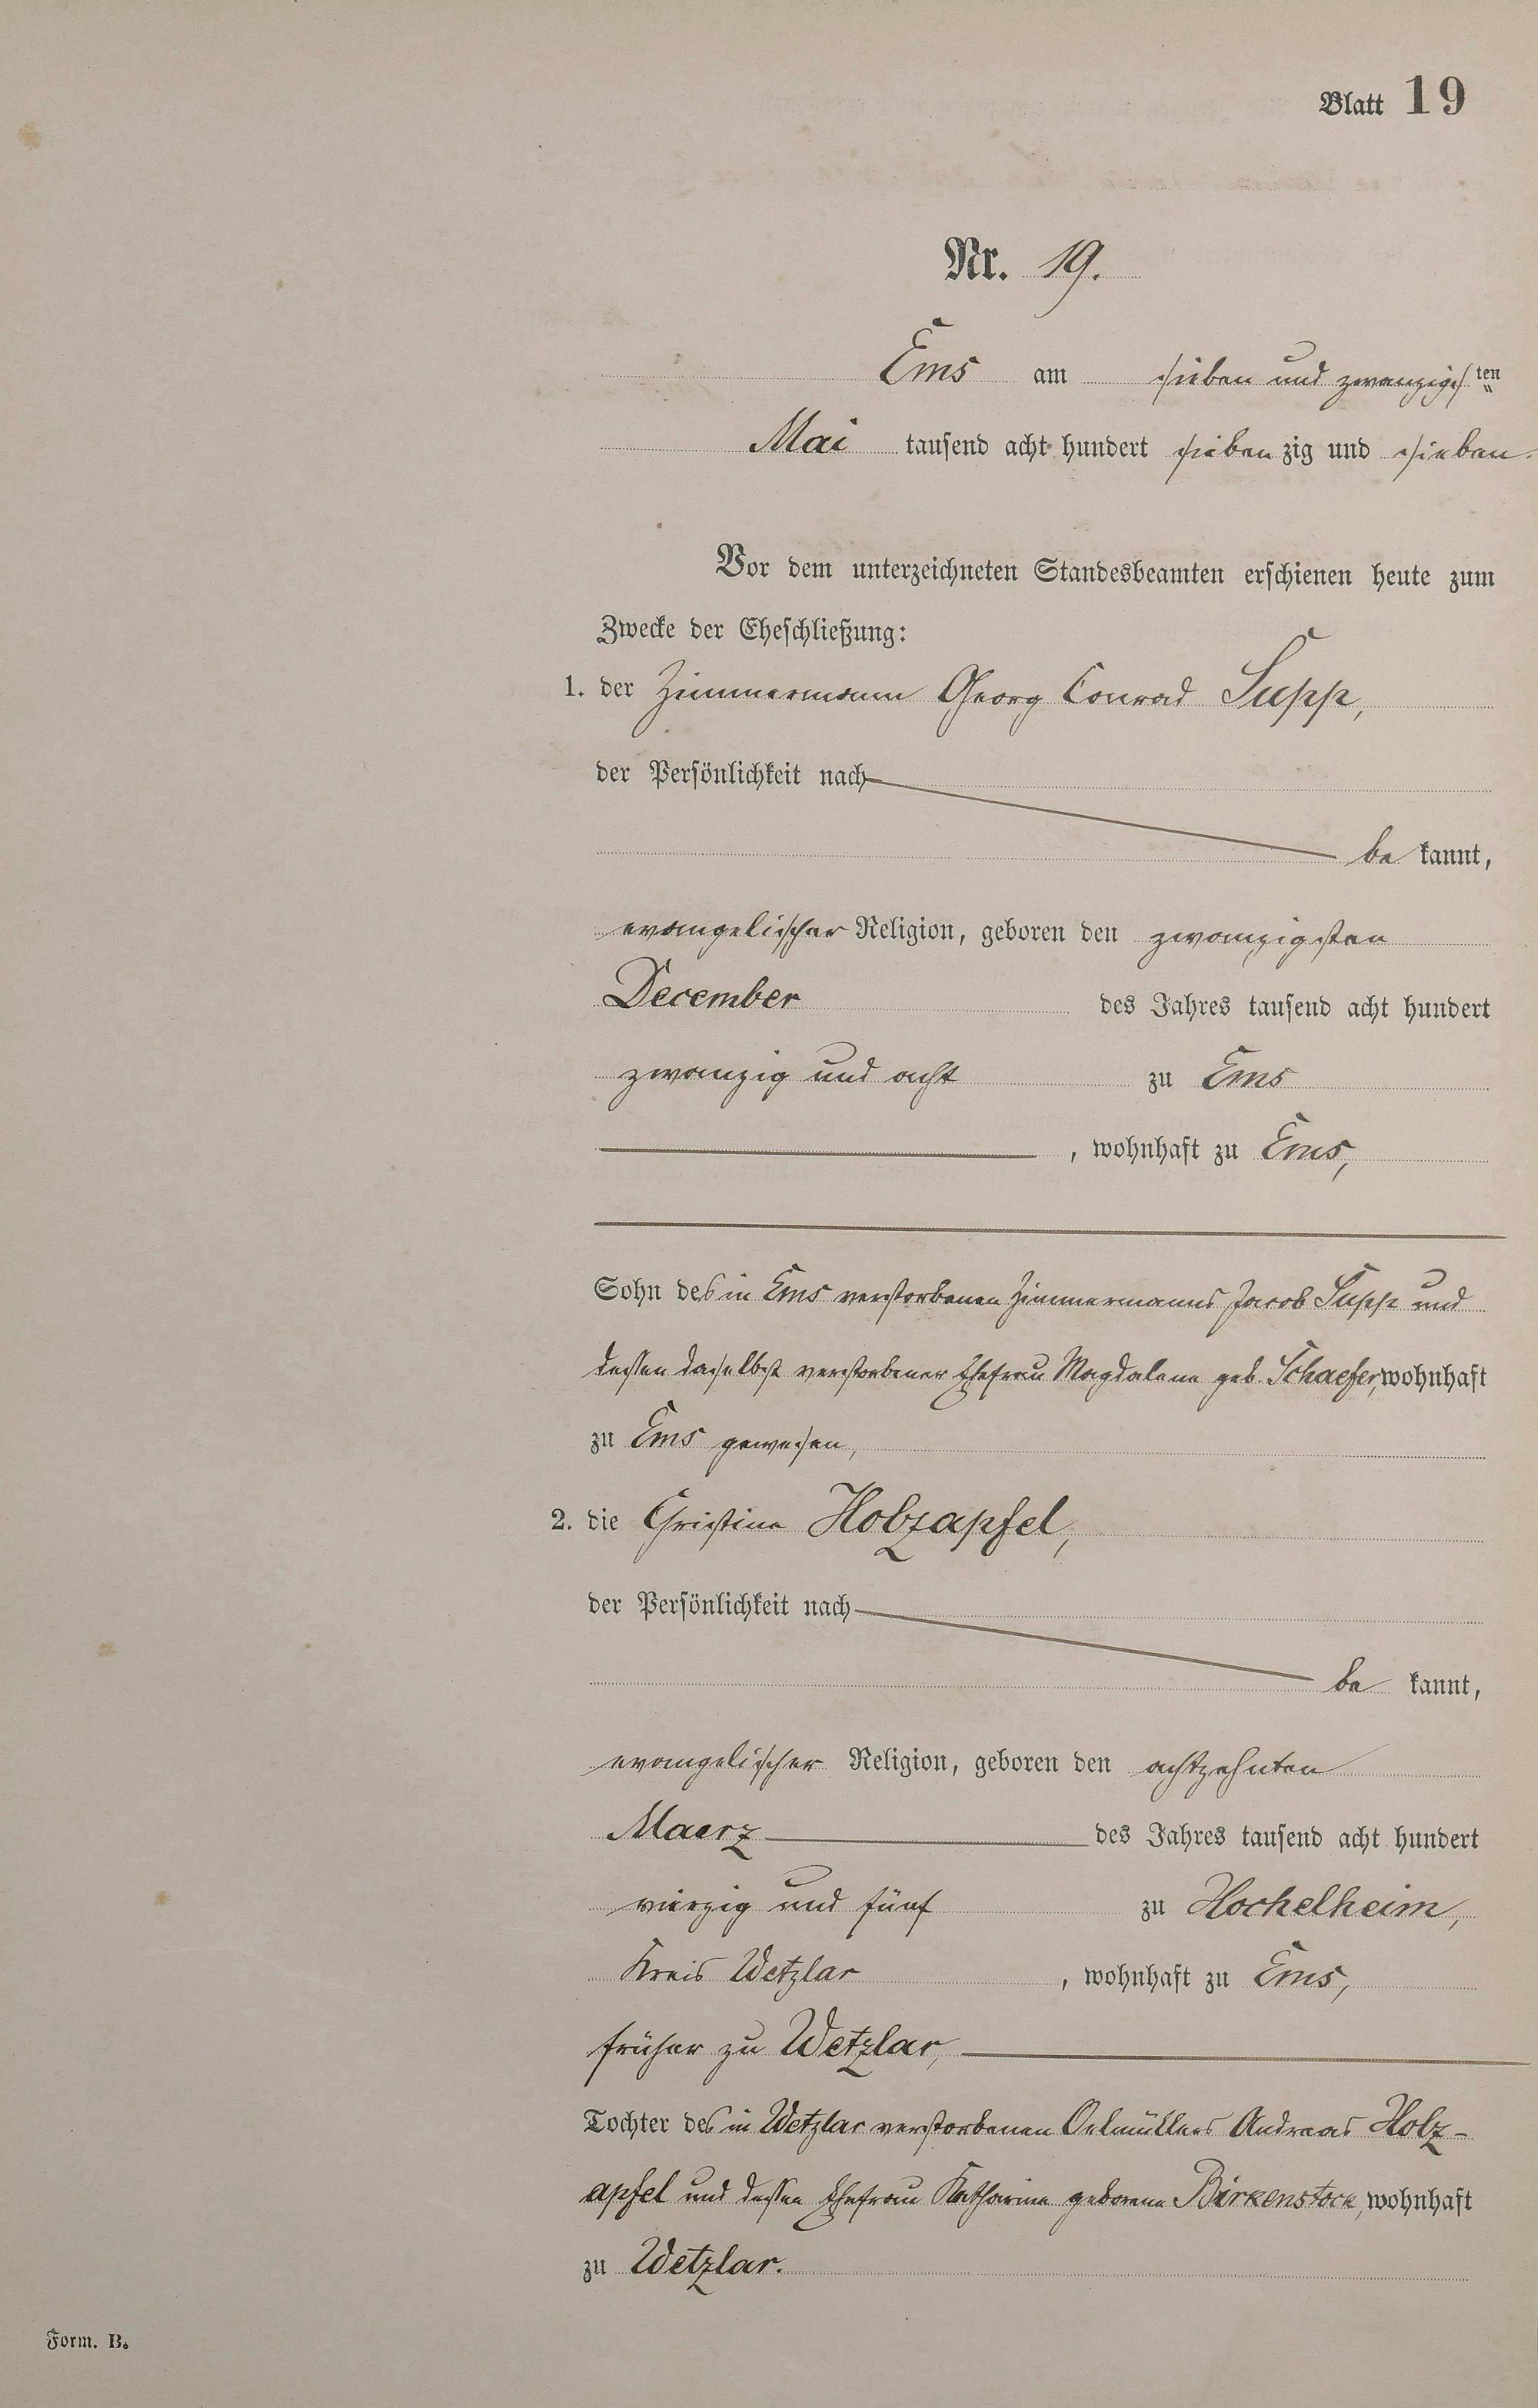 Blatt 19
Nr. 19.
Ems am sieben und zwanzigsten
Mai tausend acht hundert siebenzig und sieben.
Vor dem unterzeichneten Standesbeamten erschienen heute zum
Zwecke der Eheschließung:
1. der Zimmermann Georg Conrad Supp,
der Persönlichkeit nach
be kannt,
evangelischer Religion, geboren den zwanzigsten
December des Jahres tausend acht hundert
zwanzig und acht zu Ems
, wohnhaft zu Ems,
Sohn des in Ems verstorbenen Zimmermanns Jacob Supp und
dessen daselbst verstorbener Ehefrau Magdalena geb. Schaefer, wohnhaft
zu Ems gewesen,
2. die Christine Holzapfel,
der Persönlichkeit nach
be kannt,
evangelischer Religion, geboren den achtzehnten
Maerz des Jahres tausend acht hundert
vierzig und fünf zu Hochelheim,
Kreis Wetzlar , wohnhaft zu Ems,
früher zu Wetzlar,
Tochter des in Wetzlar verstorbenen Oelmüllers Andreas Holz-
apfel und dessen Ehefrau Katharina geborene Birkenstock, wohnhaft
zu Wetzlar.
Form. B.